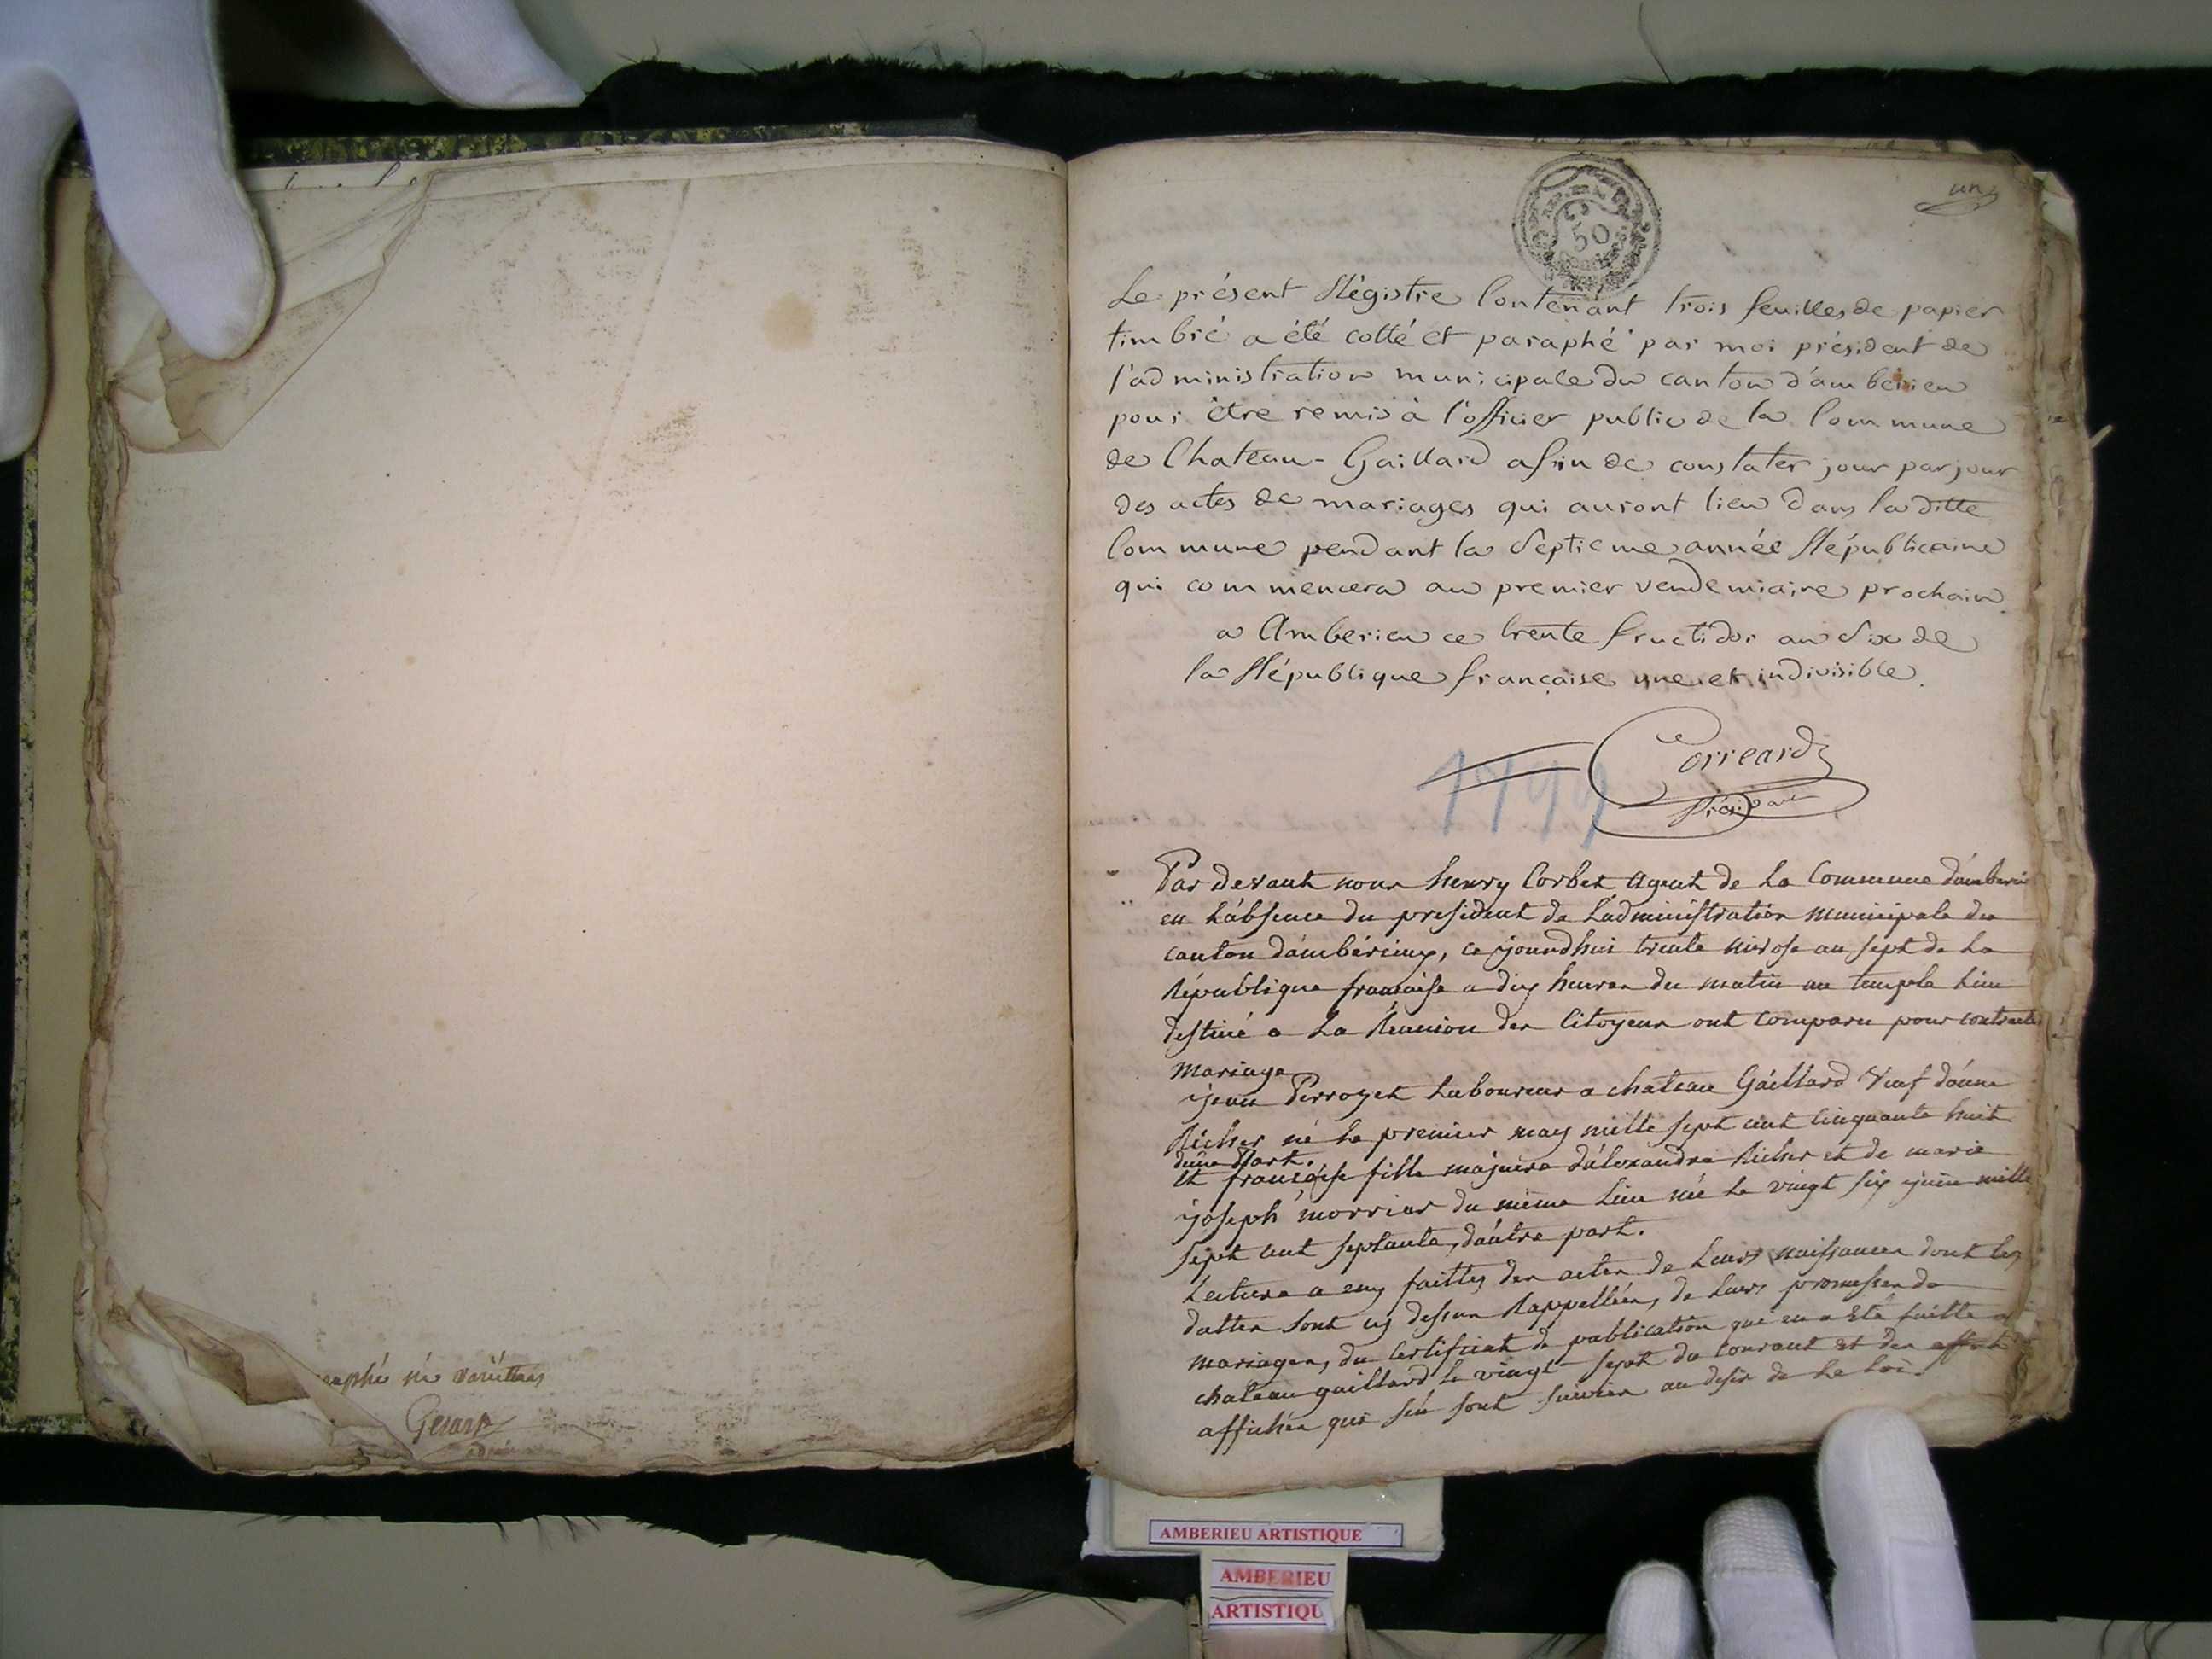 né varietur
Gerard
un
50
Le présent Régistre Contenant trois feuilles de papier
timbré a été cotté et paraphé par moi président de
l'administration municipale du canton d'amberieu
pour être remis à l'officier public de la Commune
de Chateau-Gaillard afin de constater jour par jour
des actes de mariages qui auront lieu dans la ditte
Commune pendant la Septieme année Républicaine
qui commencera au premier vendemiaire prochain.
a Amberieu ce trente fructidor an Six de
la République française une et indivisible.
Correard
Président
1799
Par devant nous henry Corbet agent de La Commune d'amberieu
en L'absence du president de L'administration municipale du
canton d'ambérieux, ce jourdhui trente nivose an sept de La
République francaise a dix heures du matin au temple Lieu
destiné a La Réunion des Citoyens ont comparu pour contracter
mariage
jean Perroyet Laboureur a chateau Gaillard Veuf d'anne
Richer né le premier may mille sept cent cinquante huit
d'une Part.
Et francoise fille majeure d'alexandre Richer et de marie
joseph morrier du même Lieu née Le vingt six juin mille
sept cent septante, d'autre part.
Lecture a eux faittes des actes de Leurs naissances dont les
dattes sont cy dessus Rappellées, de Leurs promesses de
mariages, du certificat de publication qui en a Eté faitte a
chateau gaillard le vingt-sept du courant et des
affiches qui s'en sont suivies au desir de La loi.
AMBERIEU ARTISTIQUE
AMBERIEU
ARTISTIQU